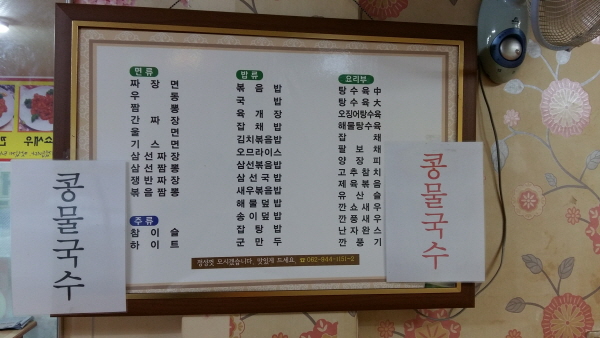 면류
짜장면
우동
짬뽕
간짜장
울면
기스면
삼선짜장
삼선짬뽕
쟁반짜장
볶음짬뽕
주류
참이슬
하이트
밥류
볶음밥
국밥
육개장
잡채밥
김치볶음밥
오므라이스
삼선볶음밥
삼선국밥
새우볶음밥
해물덮밥
송이덮밥
잡탕밥
군만두
요리부
탕수육中
탕수육大
오징어탕수육
해물탕수육
잡채
팔보채
양장피
고추참치
제육볶음
유산슬
깐쇼새우
깐풍새우
난자완스
깐풍기
정성껏 모시겠습니다. 맛있게 드세요. ☎062-944-1151-2
콩물국수
콩물국수